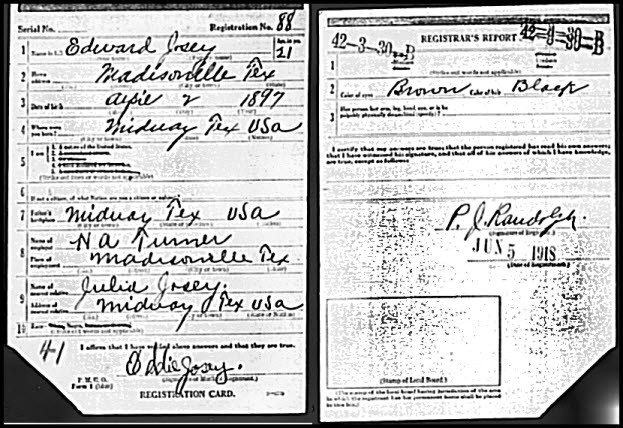 Serial No. Registration No. 88
1 Name in full Edward Josey Age, in yrs. 21
2 Home address Madisonville Tex
3 Date of birth 2 1897
4 Where were you born? Midway Tex USA
5 I am
6
7 Father's birthplace Midway Tex USA
8 Name of employer H A Turner
Place of employment Madisonville Tex
9 Name of nearest relative Julia Josey.
Address of nearest relative Midway Tex USA
10 Race
41 I affirm that I have verified above answers and that they are true.
Eddie Josey.
P. M. G. O.
Form 1 (blue)
REGISTRATION CARD.
REGISTRAR'S REPORT
42-3-30-B
1
2 Color of eyes Brown Color of hair Black
3 Has person lost arm, leg, hand, eye, or is he
palpably physically disqualified (specify)?
I certify that my answers are true; that the person registered has read his own answers;
that I have witnessed his signature, and that all of his answers of which I have knowledge,
are true, except as follows:
P. J. Randolph.
(Signature of Registrar)
JUN 5 1918
(Date of Registration)
(Stamp of Local Board)
(The stamp of the local board having jurisdiction of the area
in which the registrant has his permanent home shall be placed
in this box.)